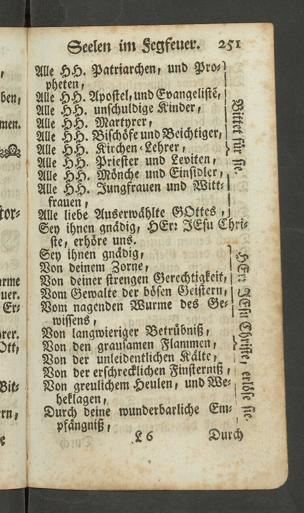 Seelen im Fegfeuer. 251
Alle HH. Patriarchen, und Pro-
pheten,
Alle HH. Apostel, und Evangelistē,
Alle HH. unschuldige Kinder,
Alle HH. Martyrer,
Alle HH. Bischöfe und Beichtiger,
Alle HH. Kirchen-Lehrer,
Alle HH. Priester und Leviten,
Alle HH. Mönche und Einsidler,
Alle HH. Jungfrauen und Witt-
frauen,
Alle liebe Auserwählte GOttes,
Bittet für sie.
Sey ihnen gnädig, HErr JEsu Chri-
ste, erhöre uns.
Sey ihnen gnädig,
Von deinem Zorne,
Von deiner strengen Gerechtigkeit,
Vom Gewalte der bösen Geistern,
Vom nagenden Wurme des Ge-
wissens,
Von langwieriger Betrübniß,
Von den grausamen Flammen,
Von der unleidentlichen Kälte,
Von der erschrecklichen Finsterniß,
Von greulichem Heulen, und We-
heklagen,
Durch deine wunderbarliche Em-
pfängniß,
HErr JEsu Christe, erlöse sie.
L 6 Durch